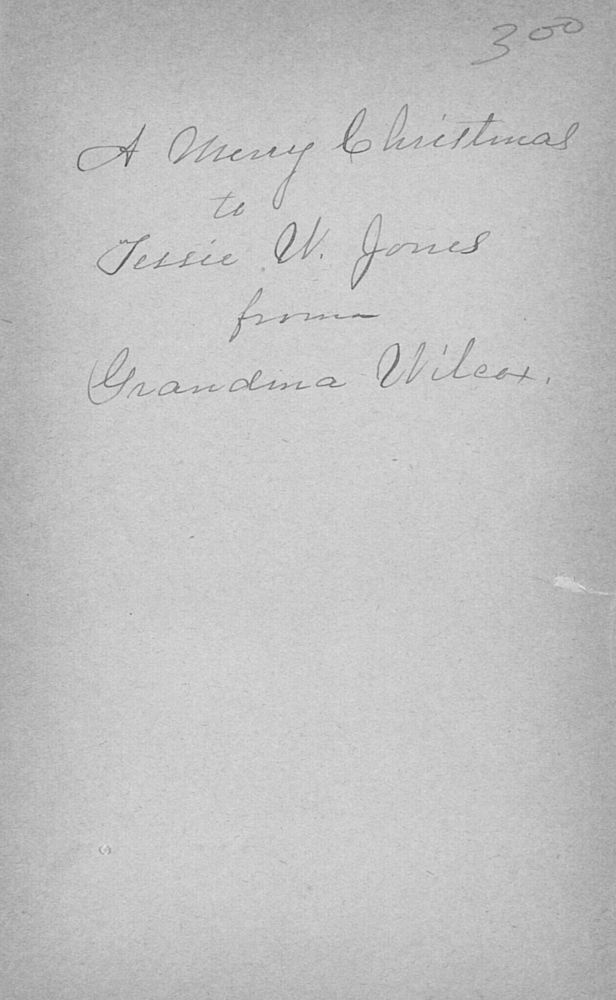 3 00
A Merry Christmas
to
Jessie W. Jones
from
Grandma Wilcox.